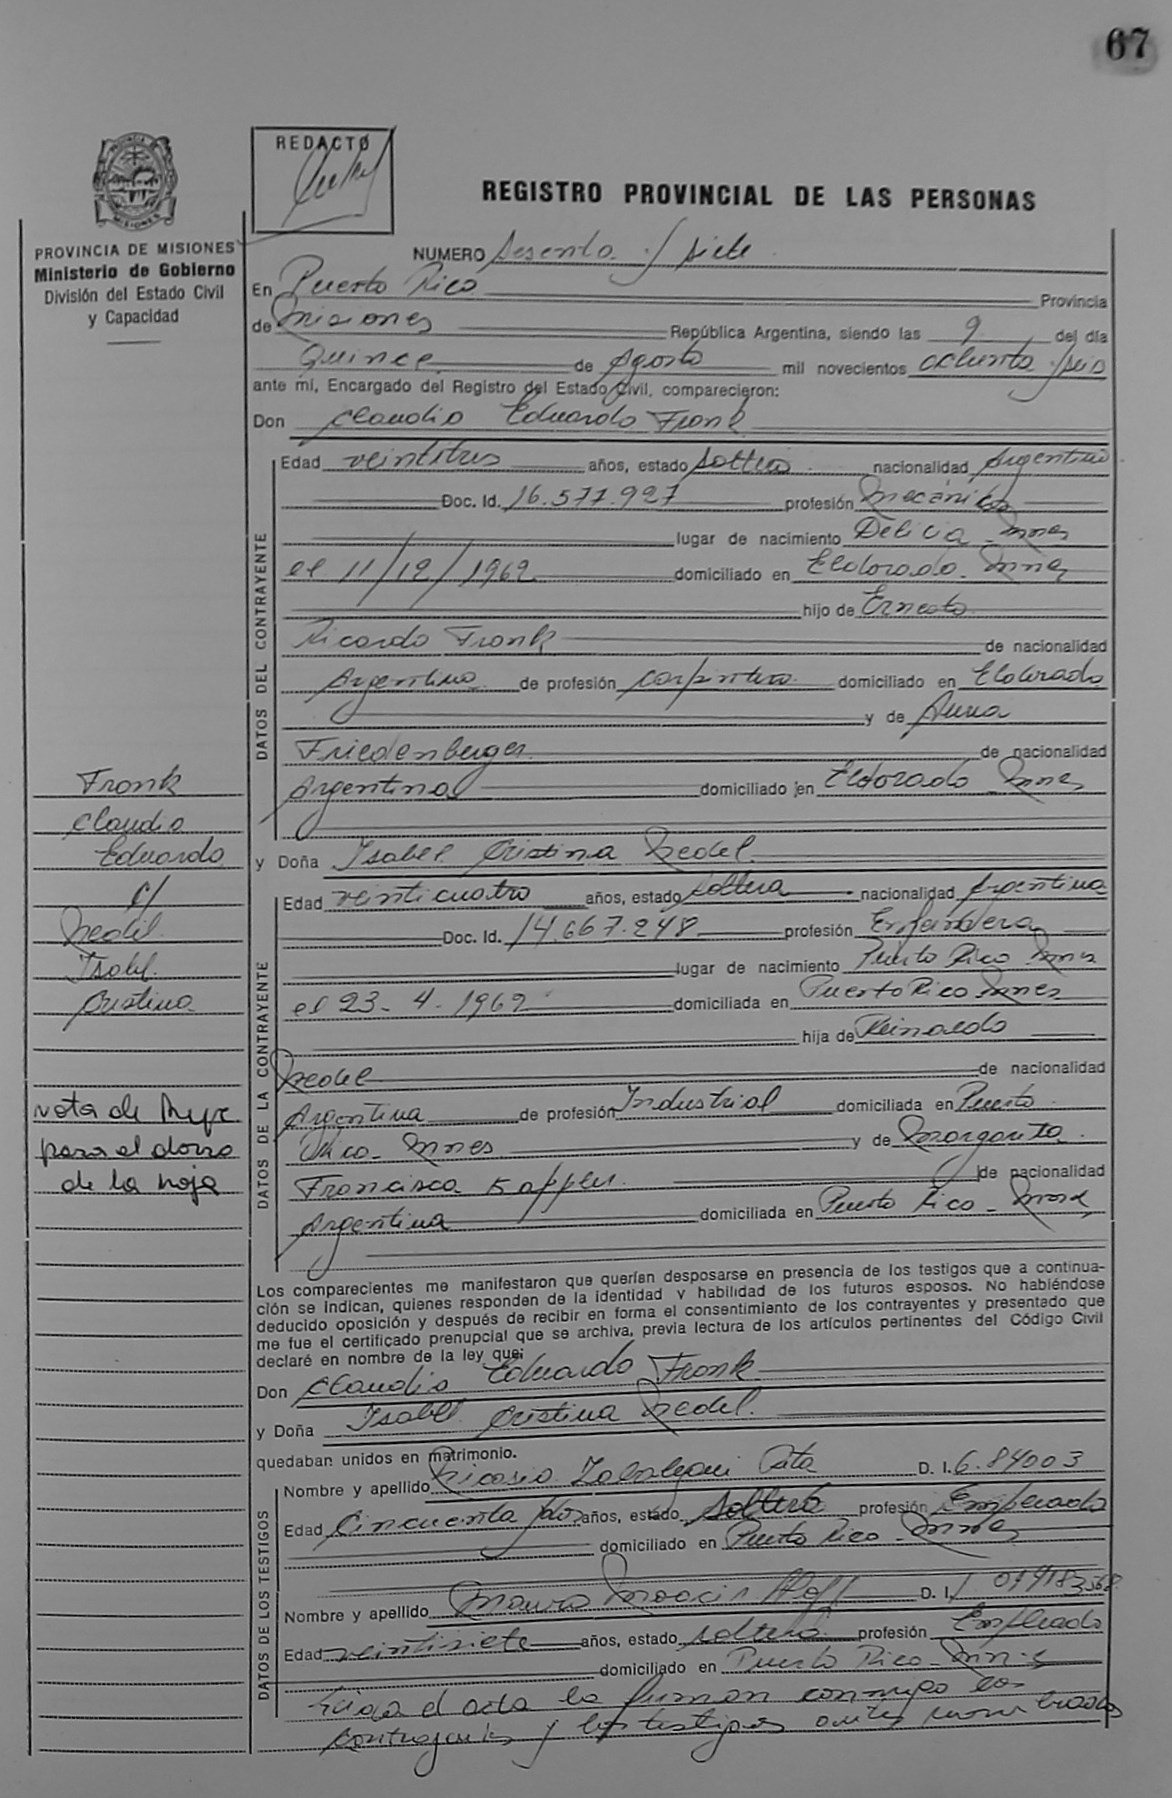 67
REDACTO
REGISTRO PROVINCIAL DE LAS PERSONAS
PROVINCIA DE MISIONES
Ministerio de Gobierno
División del Estado Civil
y Capacidad
NUMERO Sesenta y siete
En Puerto Rico Provincia
de Misiones República Argentina, siendo las 9 del día
Quince de Agosto mil novecientos ochenta y seis
ante mí, Encargado del Registro del Estado Civil, comparecieron:
Don Claudio Eduardo Fronk
DATOS DEL CONTRAYENTE
Edad veintitres años, estado soltero nacionalidad Argentino
Doc. Id. 16.577.927 profesión Mecánico
lugar de nacimiento Delicia Mnes
el 11/12/1962 domiciliado en Eldorado - Mnes
hijo de Ernesto
Ricardo Fronk de nacionalidad
Argentina de profesión carpintero domiciliado en Eldorado
y de Anna
Friedenberger de nacionalidad
Argentina domiciliado en Eldorado Mnes
Fronk
Claudio
Eduardo
c/
Nedel
Isabel
Cristina
nota de
para el dorso
de la hoja
y Doña Isabel Cristina Nedel
DATOS DE LA CONTRAYENTE
Edad veinticuatro años, estado soltera nacionalidad Argentina
Doc. Id. 14.667.248 profesión Enfermera
lugar de nacimiento Puerto Rico Mnes
el 23-4-1962 domiciliada en Puerto Rico Mnes
hija de Reinaldo
Nedel de nacionalidad
Argentina de profesión Industrial domiciliada en Puerto
Rico - Mnes y de Margarita
Francisca Kappler de nacionalidad
Argentina domiciliada en Puerto Rico - Mnes
Los comparecientes me manifestaron que querían desposarse en presencia de los testigos que a continua-
ción se indican, quienes responden de la identidad y habilidad de los futuros esposos. No habiéndose
deducido oposición y después de recibir en forma el consentimiento de los contrayentes y presentado que
me fue el certificado prenupcial que se archiva, previa lectura de los artículos pertinentes del Código Civil
declaré en nombre de la ley que:
Don Claudio Eduardo Fronk
y Doña Isabel Cristina Nedel
quedaban unidos en matrimonio.
DATOS DE LOS TESTIGOS
Nombre y apellido D. I. 6.84003
Edad Cincuenta y dos años, estado soltero profesión Empleado
domiciliado en Puerto Rico - Mnes
Nombre y apellido D. I.
Edad veintisiete años, estado soltero profesión Empleado
domiciliado en Puerto Rico - Mnes
el acta la firman conmigo los
contrayentes y los testigos antes